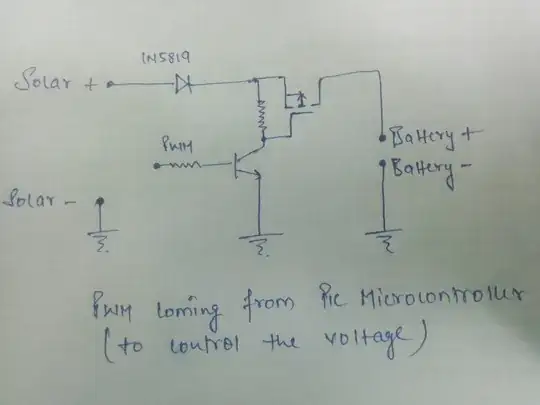 1N5819
Solar +
PWM
Battery +
Battery -
Solar -
PWM Coming from Pic Microcontroller
(to control the voltage)